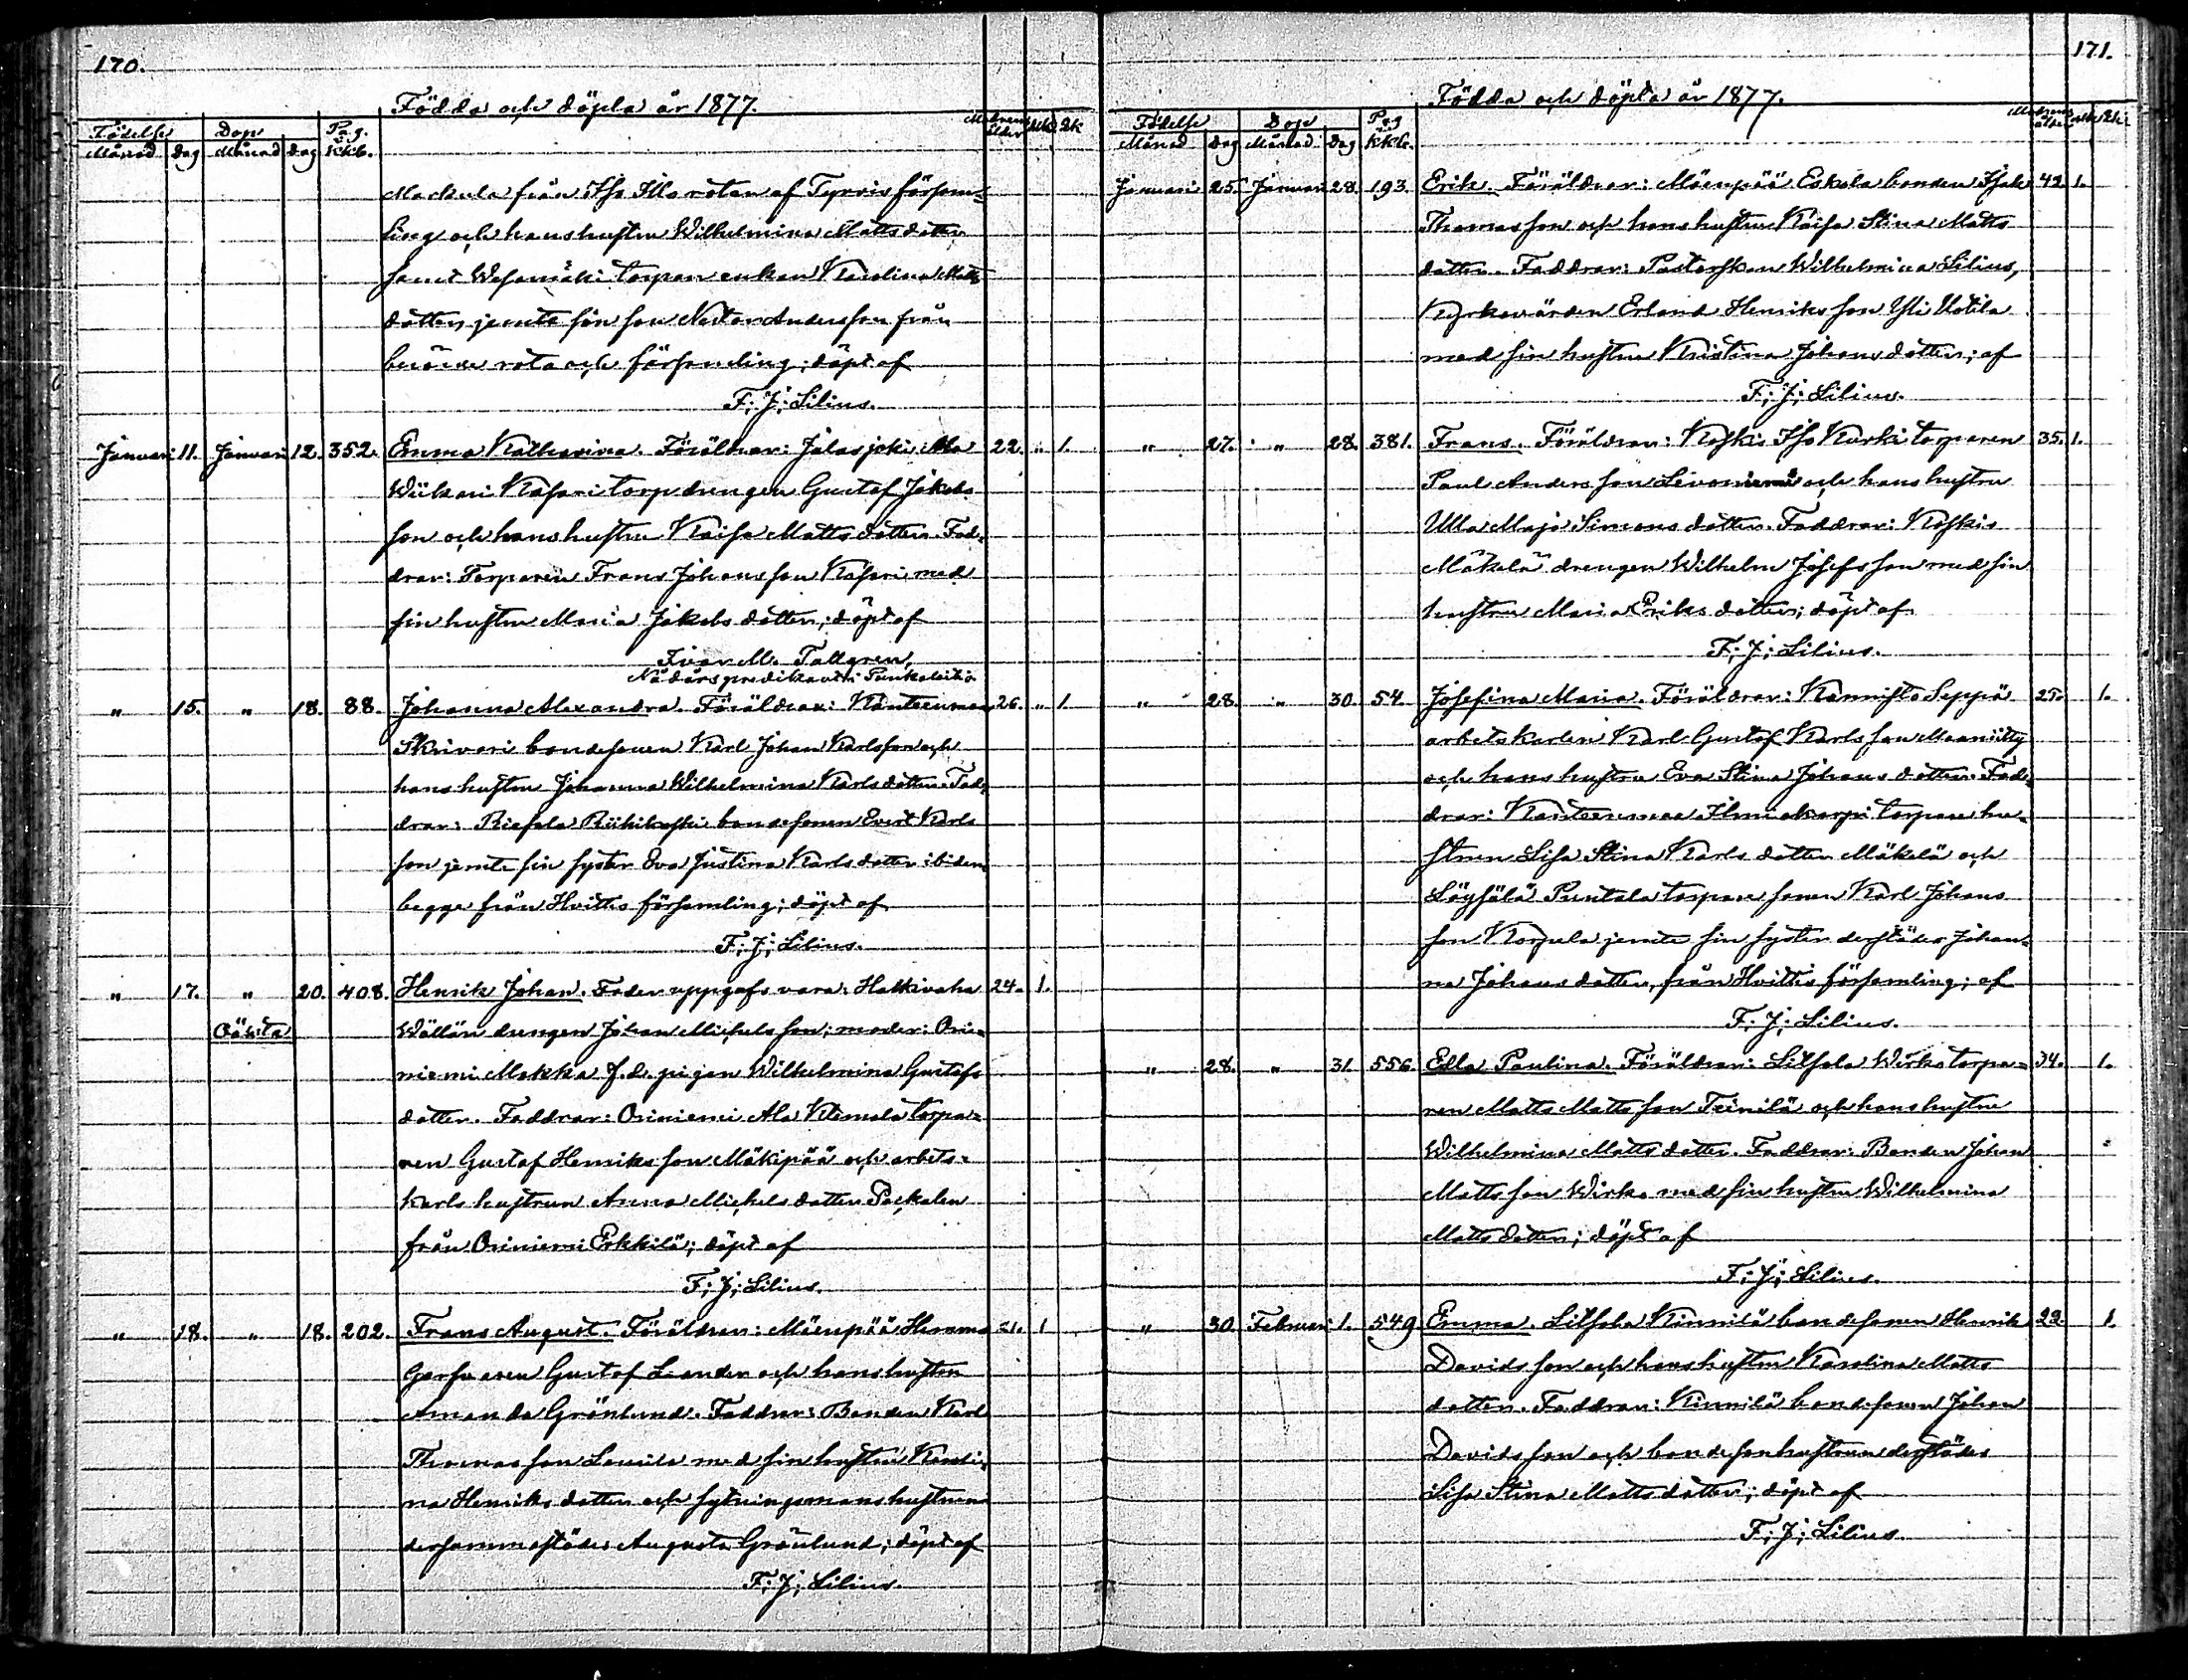 170.
Födda och döpta år 1877.
Födelse Dop Pag. Modrens ålder Mk Qk
Månad Dag Månad Dag i kkb.
från Iso Illo rotan af Tyrvis försam=
ling och hans hustru Wilhelmina Matts dotter
samt Wesamäki torpare enkan Karolina Matts
dotter jemte sin son Nestor Andersson från
berörde rota och församling; döpt af
F; J; Lilius.
Januari 11. Januari 12. 352. Emma Katharina. Föräldrar: Jalasjoki Ala 22. " 1.
Wiikari Kasari torp drengen Gustaf Jakobs
son och hans hustru Kaisa Matts dotter. Fad=
drar: Torparen Frans Johansson Kasari med
sin hustru Maria Jakobs dotter; döpt af
Ivar M. Tallgren,
Nådårspredikant i Punkalaitio
" 15. " 18. 88. Johanna Alexandra. Föräldrar: Kanteenmaa 26. " 1.
Skrivari bondesonen Karl Johan Karlsson och
hans hustru Johanna Wilhelmina Karls dotter. Fad=
drar: Riesola Riihikoski bondesonen Evert Karls
son jemte sin syster Eva Justina Karls dotter ibidem
begge från Hvittis församling; döpt af
F; J; Lilius.
" 17. " 20. 408. Henrik Johan. Fader uppgafs vara: Hakkivaha 24. 1.
Oäkta Wällän drengen Johan Michelsson; moder: Orin=
niemi Mokka f. d. pigan Wilhelmina Gustafs
dotter. Faddrar: Oriniemi Ala Klemola torpa=
ren Gustaf Henriksson Mäkipää och arbets=
karls hustrun Anna Michels dotter
från Oriniemi Erkkilä; döpt af
F; J; Lilius.
" 18. " 18. 202. Frans August. Föräldrar: Mäenpää Hemmo 21. 1
Garfvaren Gustaf Leander och hans hustru
Amanda Grönlund. Faddrar: Bonden Karl
Thomasson med sin hustru Karoli=
na Henriks dotter och sytningsmans hustrun
dersammastädes Augusta Grönlund; döpt af
F; J; Lilius.
171.
Födda och döpta år 1877.
Födelse Dop Pag Modrens ålder Mk Qk
Månad Dag Månad Dag i kkb.
Januari 25. Januari 28. 193. Erik. Föräldrar: Mäenpää Eskola bonden Isak 42. 1.
Thomasson och hans hustru Kaisa Stina Matts
dotter. Faddrar: Pastorskan Wilhelmina Lilius,
Kyrkovärden Erland Henriksson Yli Uotila
med sin hustru Kristina Johans dotter; af
F; J; Lilius.
" 27. " 28. 381. Frans. Föräldrar: Koskis Iso Kurki torparen 35. 1.
Paul Andersson Livoniemi och hans hustru
Ulla Maja Simons dotter. Faddrar: Koskis
Mäkelä drengen Wilhelm Josefsson med sin
hustru Maria Eriks dotter; döpt af
F; J; Lilius.
" 28. " 30. 54. Josefina Maria. Föräldrar: Kannisto Seppä 25. 1.
arbetskarlen Karl Gustaf Karlsson Maaniitty
och hans hustru Eva Stina Johans dotter. Fad=
drar: Kanteenmaa torpare hu=
strun Lisa Stina Karls dotter Mäkelä och
Löysälä Puntala torpare sonen Karl Johans
son Korpela jemte sin syster derstädes Johan=
na Johans dotter, från Hvittis församling; af
F; J; Lilius.
" 28. " 31. 556. Edla Paulina. Föräldrar: Liitsola Wirko torpa= 34. 1.
ren Matts Mattsson Teinilä och hans hustru
Wilhelmina Matts dotter. Faddrar: Bonden Johan
Mattsson Wirko med sin hustru Wilhelmina
Matts dotter; döpt af
F; J; Lilius.
" 30. Februari 1. 549. Emma. Liitsola Kinnilä bondesonen Henrik 22. 1.
Davidsson och hans hustru Karolina Matts
dotter. Faddrar: Kinnilä bondesonen Johan
Davidsson och bondesonhustrun derstädes
Lisa Stina Matts dotter; döpt af
F; J; Lilius.